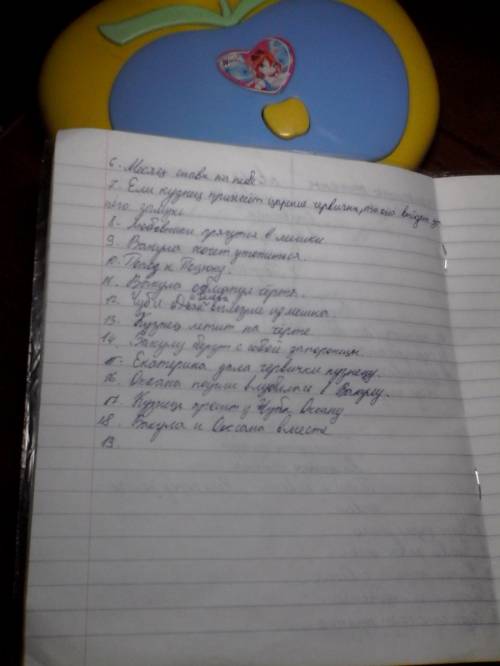 6. Месяц снова на небе
7. Если кузнец принесёт царские червички, то она выйдет за
него замуж
8. Любовники прячутся в мешки
9. Вакула хочет утопиться.
10. Поход к Пацюку.
11. Вакула обманул чёрта.
12. Чуб и Дьяк вылезли из мешка
13. Кузнец летит на чёрте
14. Вакулу берут с собой запорожцы
15. Екатерина дала червички кузнецу.
16. Оксана позже влюбилась в Вакулу.
17. Кузнец просит у Чуба Оксану
18. Вакула и Оксана вместе
19.